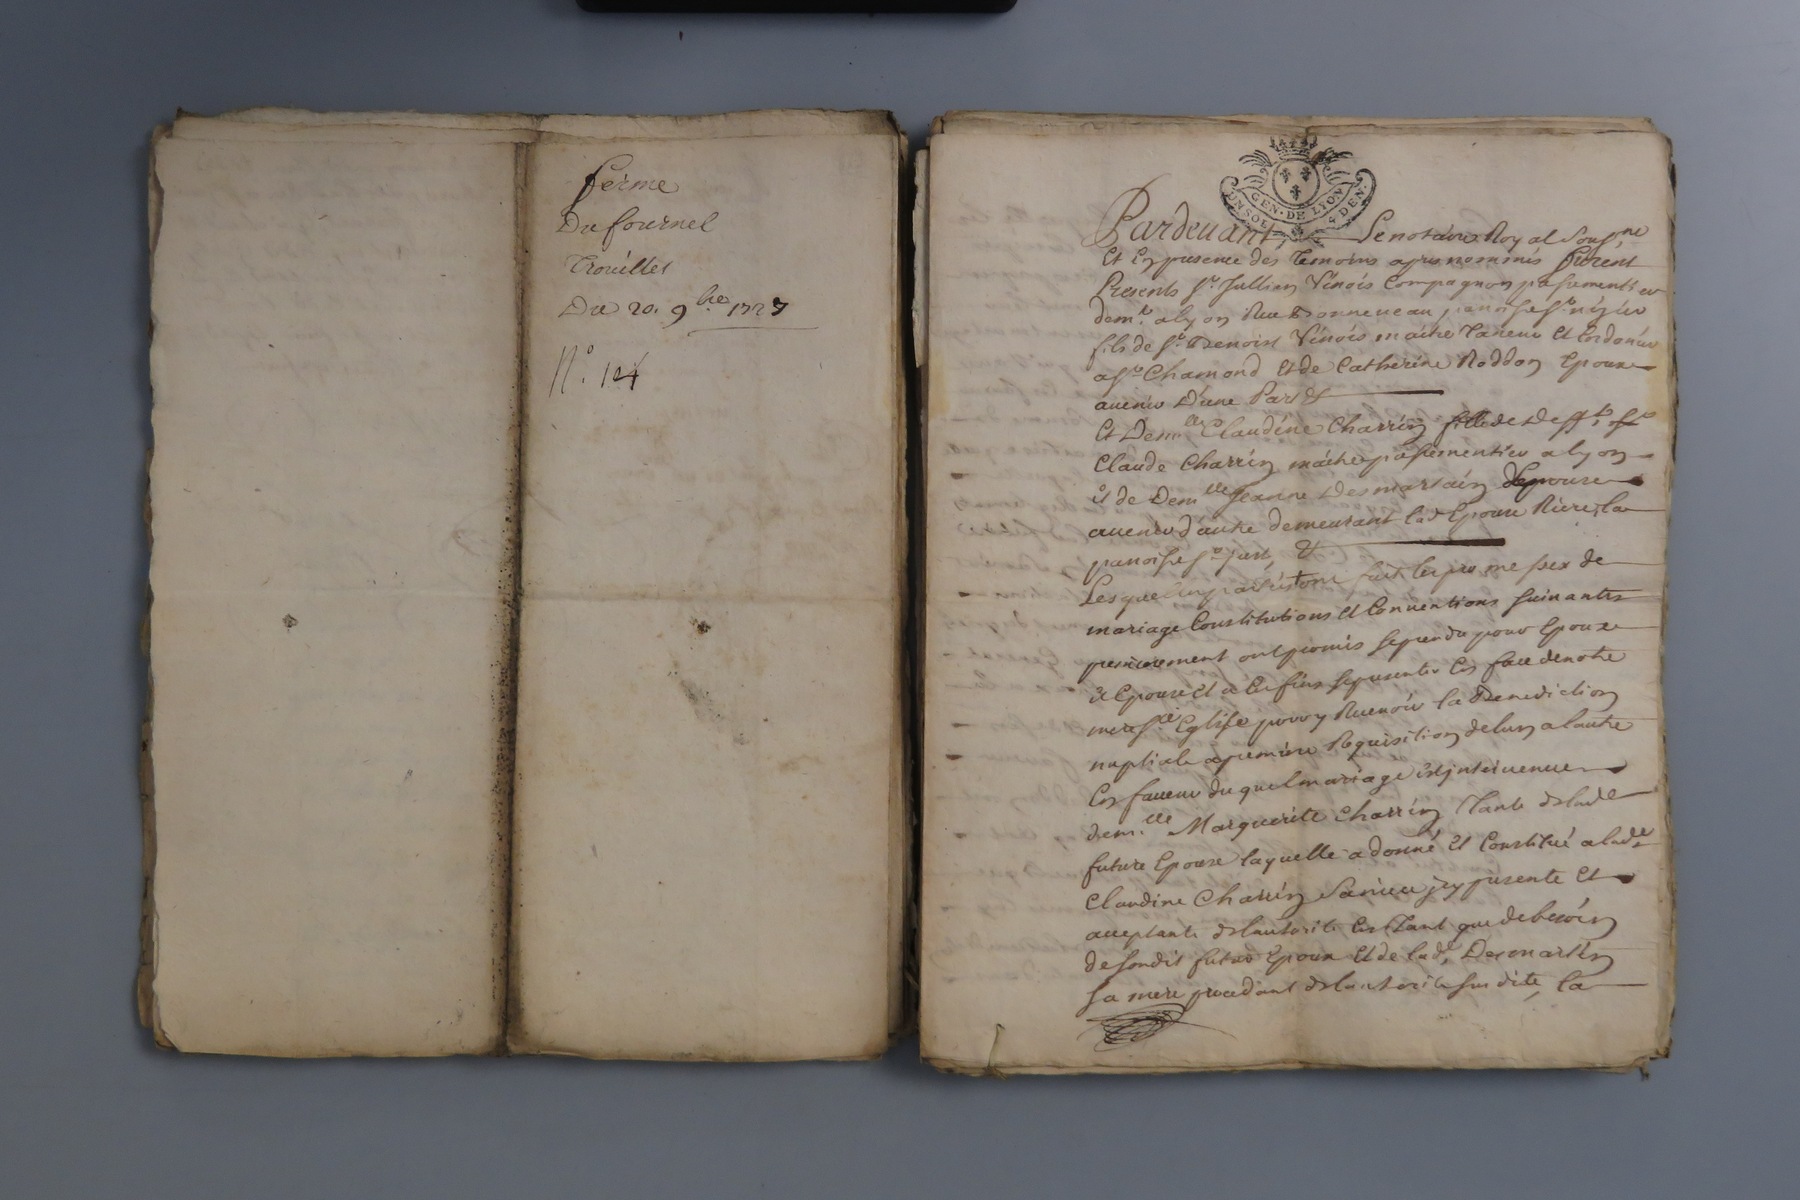 ferme
Du fournel
Trouillet
Du 20. 9bre 1727
N° . 104
GEN · DE LYON
UN SOL 4 DEN.
Pardevant Le notaire Royal Soubsne
Et En presence des Temoins apres nommés furent
Presents sr Jullien Vinois Compagnon passementier
demt a lyon Rue Bonneveau paroisse st nizier
fils de sr Benoist Vinois maitre Taneur Et Cordonier
a st Chamond Et de Catherine Roddon Epoux
avenir D'une Part Et
Et Demlle Claudine Charrin fille de Defft sr
Claude Charrin maitre passementier a lyon
et de Demlle Jeanne Desmartin Epouse
avenir d'autre demeurant lad Epouse Riere la
paroisse st just, Et
Lesquelles parties ont fait les promesses de
mariage Constitutions Et Conventions suivantes
premierement ont promis se prendre pour Epoux
et Epouse Et a Ces fins se presenter En face de notre
mere ste Eglise pour y Recevoir la Benediction
nuptiale a premiere Requisition de lun a lautre
En faveur du quel mariage est intervenue
demlle Marguerite Charrin Tante de lade
future Epouse laquelle a donné Et Constitué a lade
Claudine Charrin sa niece icy presente Et
acceptante de lautorité En Tant que de besoin
de sondit futur Epoux Et de lade Desmartin
sa mere procedant de lautorité susdite, la